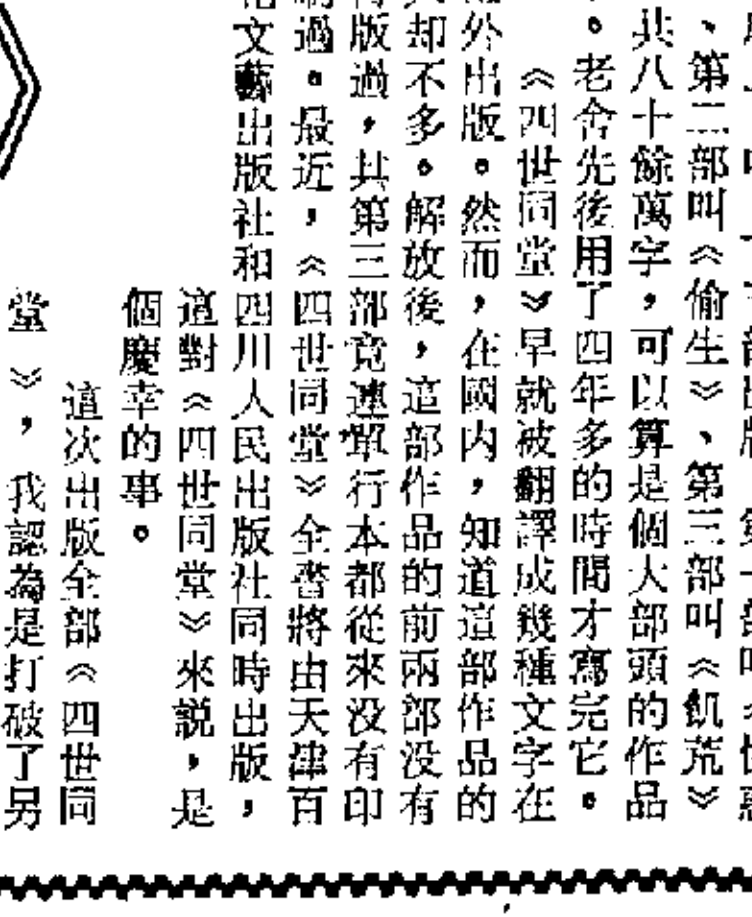 、第二部叫《偷生》、第三部叫《飢荒》
共八十餘萬字,可以算是個大部頭的作品
。老舍先後用了四年多的時間才寫完它。
《四世同堂》早就被翻譯成幾種文字在
外出版。然而,在國内,知道這部作品的
却不多。解放後,這部作品的前兩部没有
版過,其第三部竟連單行本都從來没有印
過。最近,《四世同堂》全書將由天津百
文藝出版社和四川人民出版社同時出版,
這對《四世同堂》來説,是
個慶幸的事。
這次出版全部《四世同
堂》,我認為是打破了另